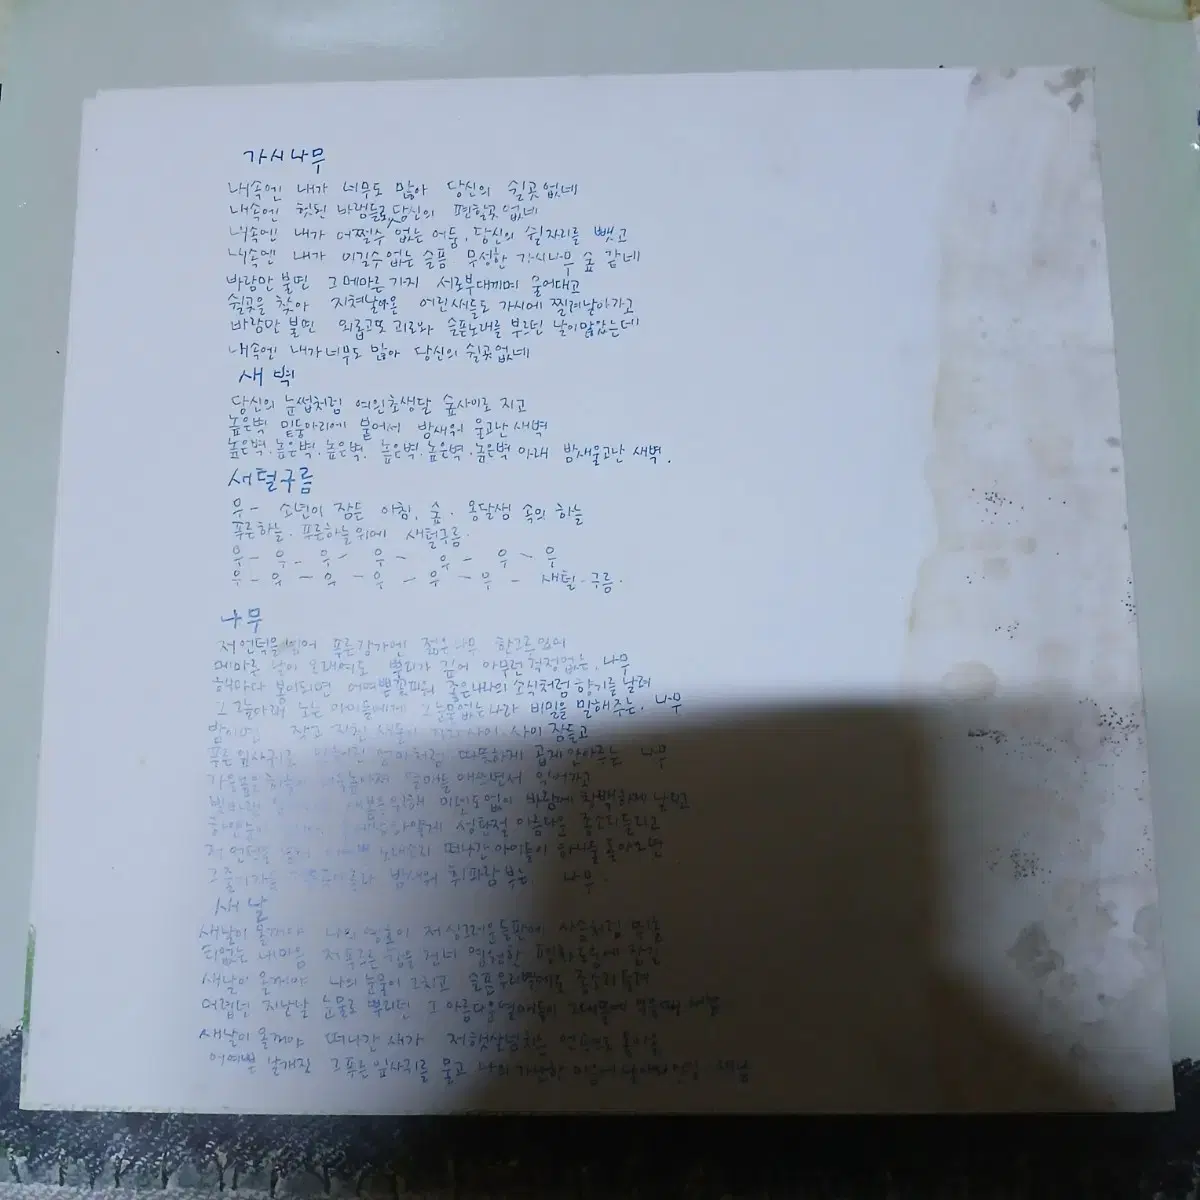 가시나무
내속엔 내가 너무도 많아 당신의 쉴곳 없네
내속엔 헛된 바램들로 당신의 편할곳 없네
내속엔 내가 어쩔수 없는 어둠, 당신의 쉴자리를 뺏고
내속엔 내가 이길수없는 슬픔 무성한 가시나무 숲 같네
바람만 불면 그 메마른 가지 서로부대끼며 울어대고
쉴곳을 찾아 지쳐날아온 어린새들도 가시에 찔려날아가고
바람만 불면 외롭고또 괴로와 슬픈노래를 부르던 날이많았는데
내속엔 내가너무도 많아 당신의 쉴곳없네
새벽
당신의 눈썹처럼 여윈초생달 숲사이로 지고
높은벽 밑둥아리에 붙어서 밤새워 울고난새벽
높은벽.높은벽.높은벽. 높은벽.높은벽.높은벽 아래 밤새울고난 새벽.
새털구름
우- 소년이 잠든 아침, 숲. 옹달샘 속의 하늘
푸른하늘. 푸른하늘위에 새털구름.
우- 우- 우- 우- 우- 우- 우
우- 우- 우- 우- 우- 우- 새털-구름.
나무
저 언덕을 넘어 푸른강가엔 젊은나무 한그루있어
메마른 날이 오래여도 뿌리가 깊어 아무런걱정없는, 나무
해마다 봄이되면 어여쁜꽃피워 좋은나라의 소식처럼 향기를 날려
그 그늘아래 노는 아이들에게 그 눈물없는나라 비밀을 말해주는, 나무
밤이면 작고 지친 새들이 가지 사이 사이 잠들고
푸른잎사귀로 엄마처럼 따뜻하게 곱게안아주는 나무
가을 열매를 익어가고
이별도없이 바람에 날리고
성탄절 아름다운 종소리들리고
저 언덕을 넘어 노래소리 떠나간아이들이 하나둘 돌아오면
그 줄기가 밤새워 휘파람 부는 나무.
새날
새날이 올거야 나의 영혼이 저 싱그러운들판에 사슴처럼 뛰놀
티없는 내마음 저 폭풍 건너 영원한 평화 잠긴
새날이 올거야 나의 눈물이 그치고 슬픈우리 종소리들려
어렵던 지난날 눈물로 뿌리던 그 아름다운열매들이
새날이 올거야 떠나간 새가 저 햇살넘치는 언덕으로 돌아올
어여쁜 날개진 그푸른잎사귀를 물고 나의 가난한 새날